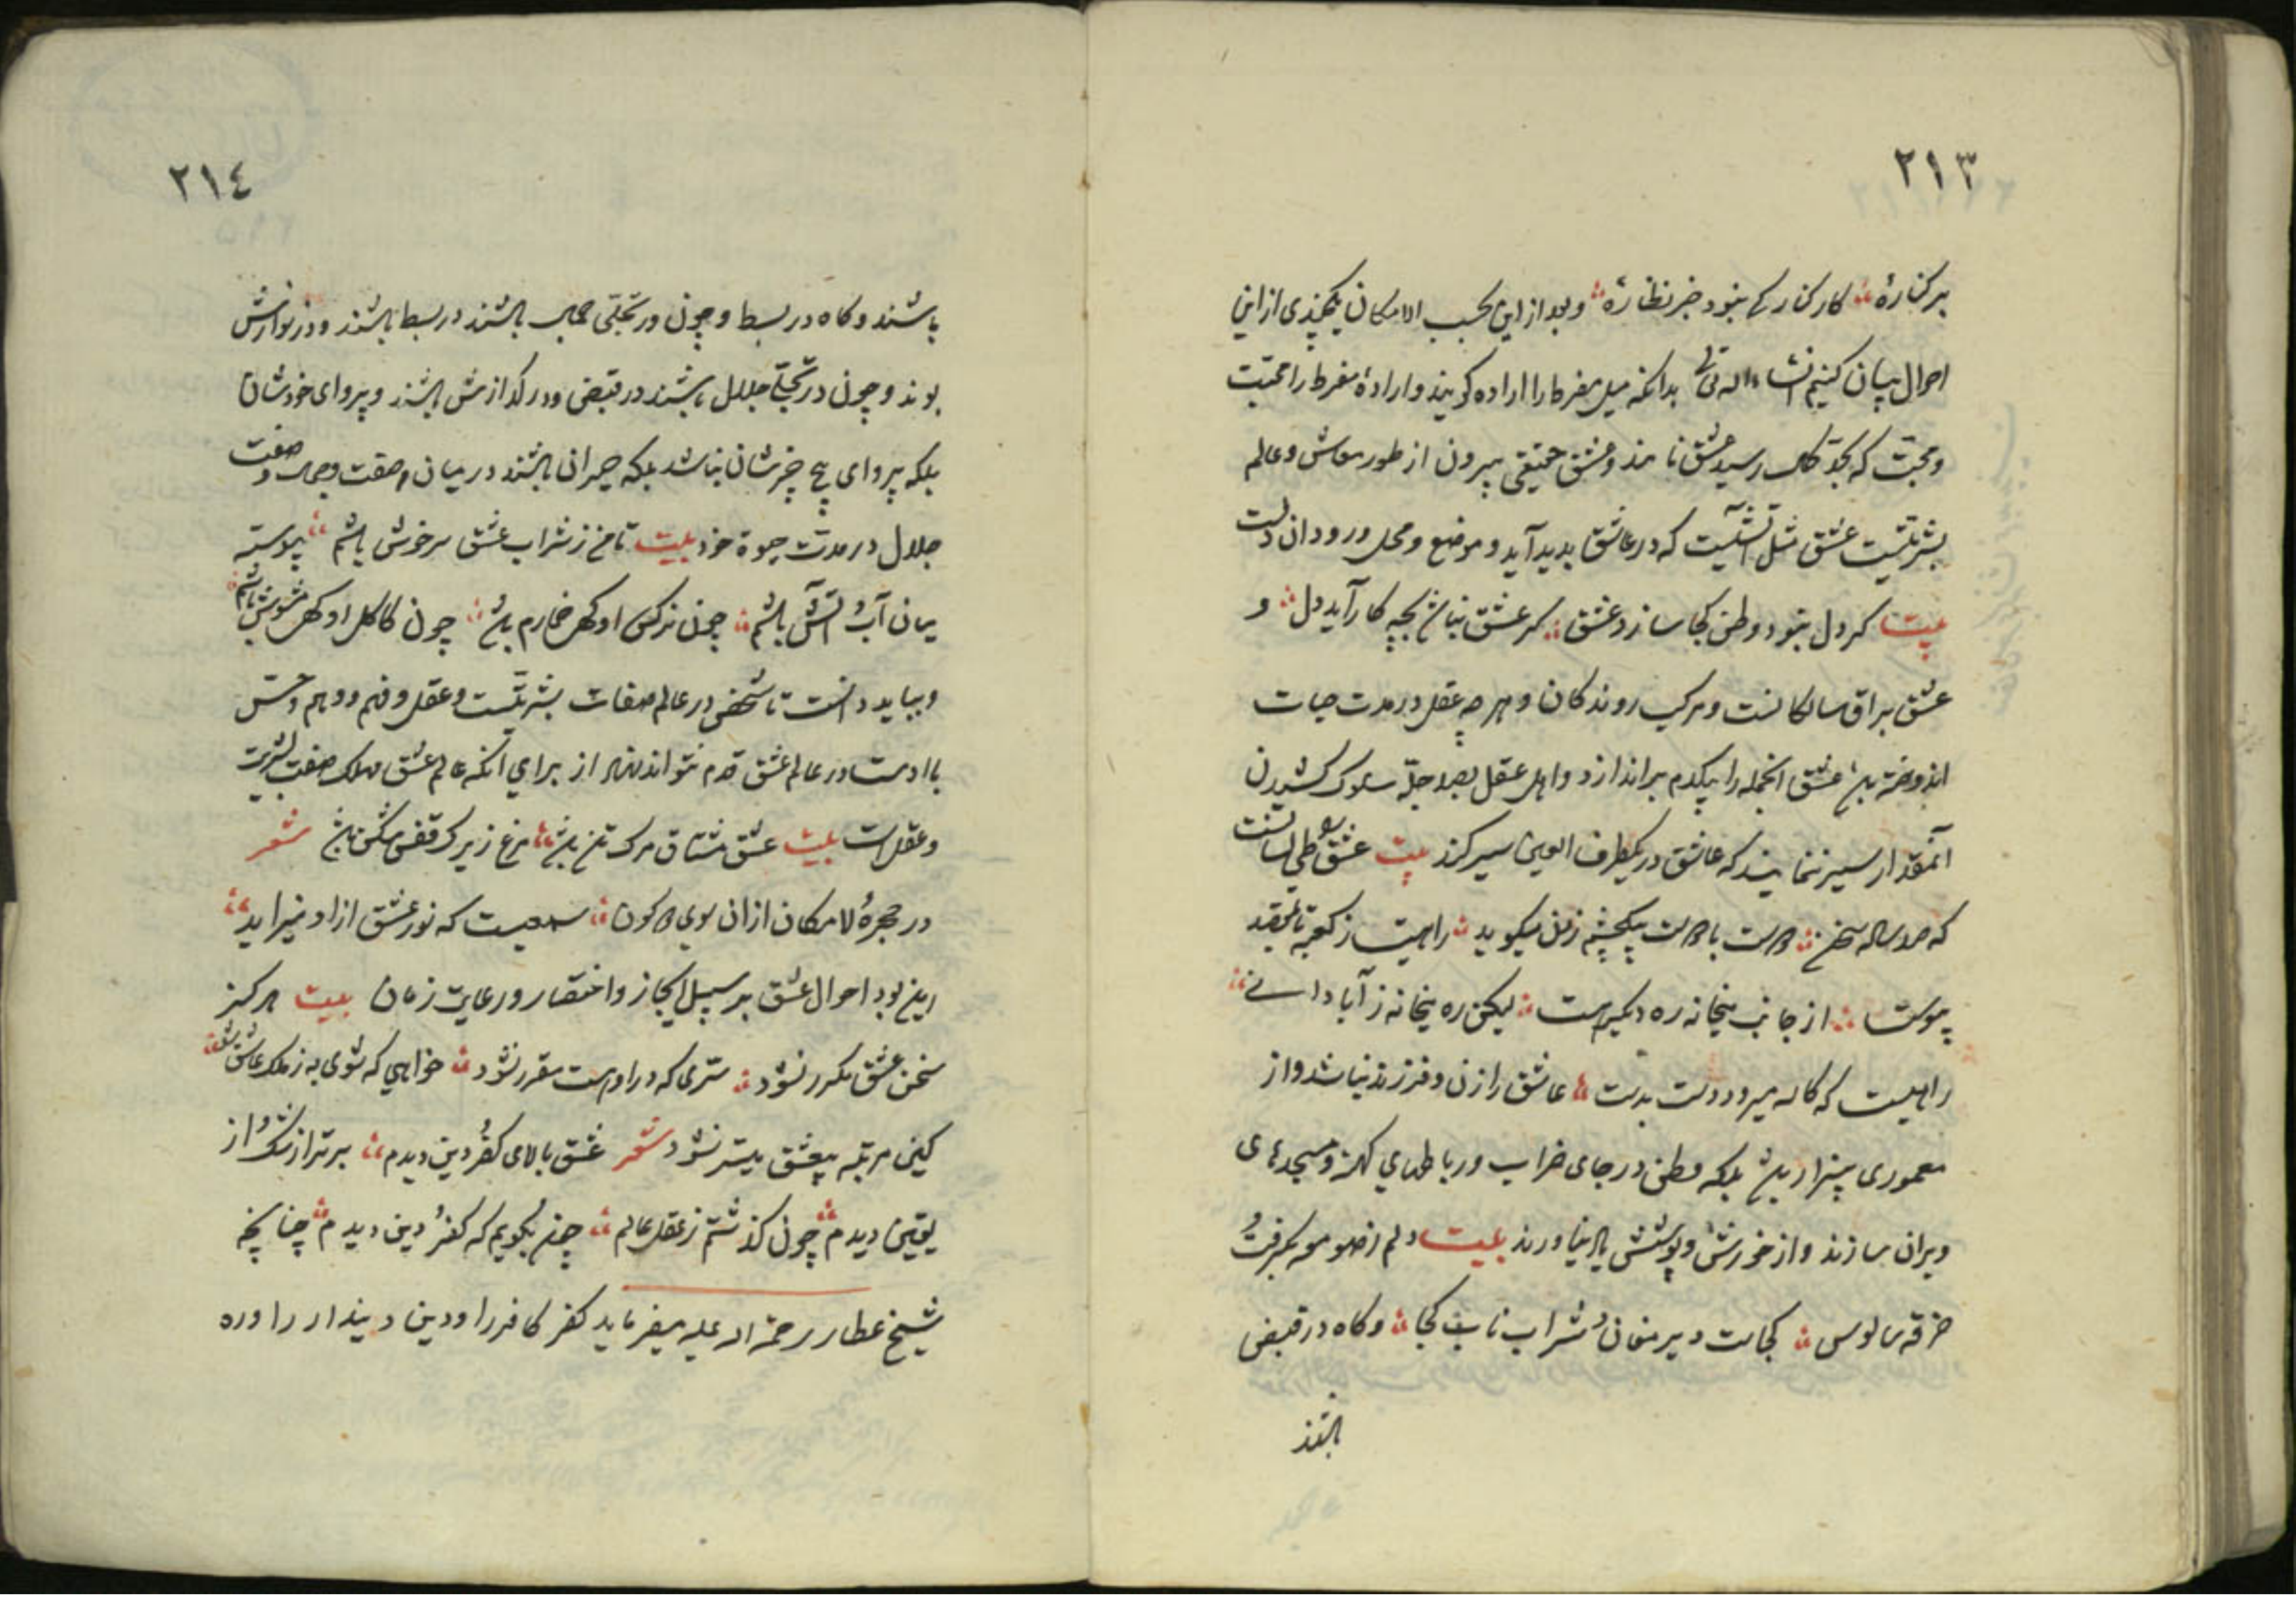 ٢١٣
بر کنارهٔ کار کنارکی نبود جز نظارهٔ و بعد از این بحسب الامکان چیزی از این
احوال بیان کنیم انشاءاله تعالی بدانکه میل مفرط را اراده کویند و ارادهٔ مفرط را محبّت
و محبّت که بحدّ کمال رسید عشق نامند و عشق حقیقی بیرون از طور معاش و عالم
بشریّتست عشق مثل آتشیست که در عاشق بدید آید و موضع و محل ورود آن دلست
بیت کر دل نبود وطن کجا سازد عشق کر عشق نباشد بچه کار آید دل و
عشق براق سالکانست و مرکب روندکان و هر چه عقل در مدت حیات
اندوخته باشد عشق انجمله را بیکدم براندازد و اهل عقل بصد چلّه سلوک کشیدن
آنمقدار سیر ننمایند که عاشق در یکطرف العین سیر کند بیت عشق طی لسانست
که صد ساله سخن دوست با دوست بیکچشم زدن میکوید راهیست ز کعبه تا بمقصد
پیوست از جانب میخانه ره دیکر هست لیکن ره میخانه ز آبادانی
راهیست که کاسه میرود دست بدست عاشق را زن و فرزند نباشد و از
معموری بیزار باشد بلکه وطن در جای خراب و رباطهای کهنه و مسجدهای
ویران سازند و از خورش و پوشش یاد نیاورند بیت دلم ز صومعه بکرفت و
خرقه سالوس کجاست دیر مغان و شراب ناب کجا و کاه در قبض
باشند
٢١٤
باشند و کاه در بسط و چون در تجلّی جمال باشند در بسط باشند و در نوازش
بوند و چون در تجلّی جلال باشند در قبض و در کدازش باشند و پروای خودشان
بلکه پروای هیچ چیزشان نباشد بلکه حیران باشند در میان صفت جمال و صفت
جلال در مدّت حیوة خود بیت تا من ز شراب عشق سرخوش باشم پیوسته
میان آب و آتش باشم چون نرکس او کهی خمارم باشد چون کاکل او کهی مشوّش باشم
و بباید دانست تا شخص در عالم صفات بشریّتست و عقل و فهم و وهم و حسّ
با اوست در عالم عشق قدم نتواند نهاد از برای انکه عالم عشق مهلک صفت بشریّت
و عقلست بیت عشق مشتاق مرک تن باشد مرغ زیرک قفس شکن باشد شعر
در حجرهٔ لامکان از ان سوی دو کون شمعیست که نور عشق از او میزاید
این بود احوال عشق بر سبیل ایجاز و اختصار و رعایت زمان بیت هرکز
سخن عشق مکرر نشود سرّی که در اوهست مقرر نشود خواهی که شوی به ز ملک عاشق شو
کین مرتبه بیعشق میسّر نشود شعر عشق بالای کفر و دین دیدم برتر از شک و از
یقین دیدم چون کذشتم ز عقل عالم چند بکویم که کفر و دین دیدم چنانچه
شیخ عطار رحمة اله علیه میفرماید کفر کافر را و دین دیندار را وره